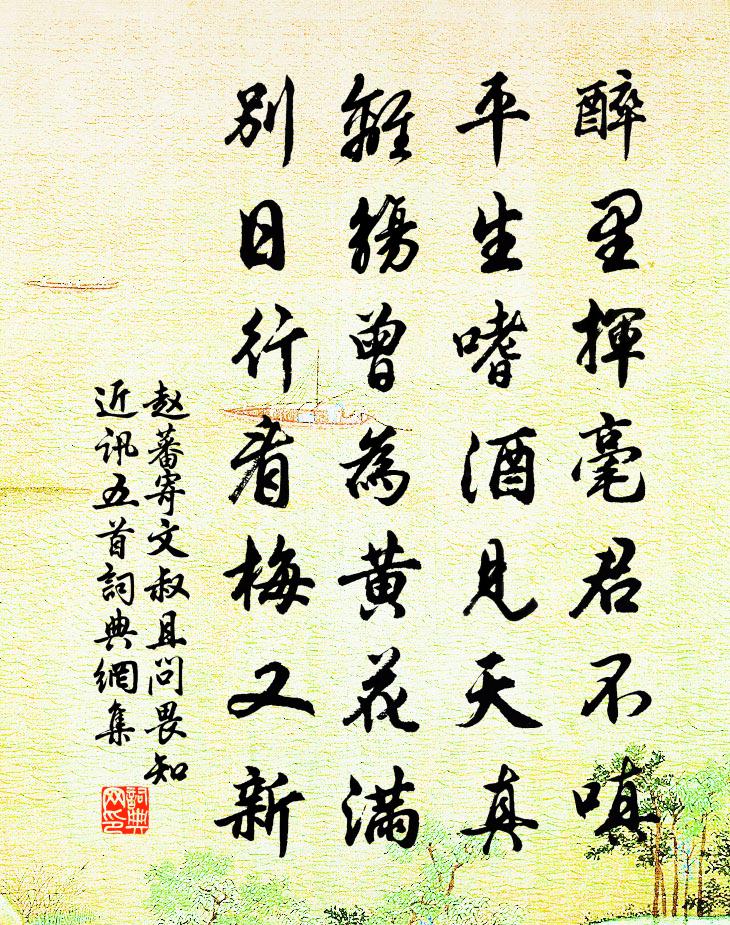 醉里揮毫君不嗔
平生嗜酒見天真
離觴曾為黃花滿
別日行看梅又新
赵蕃寄文叔且問畏知
近訊五首詞典網集
詞典
网印